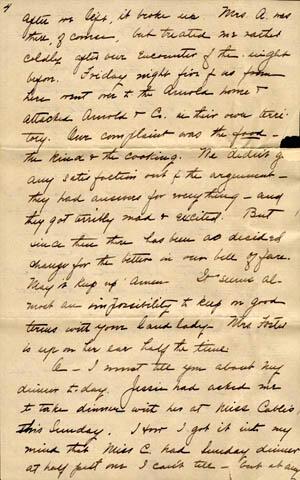 4
after we left, it broke us Mrs. A. was
there, of course, but treated me rather
coldly after our encounter of the night
before. Friday night five of us from
here went over to the Arnold home &
attacked Arnold & Co. in their own terri-
tory. Our complaint was the food -
the kind & the cooking. We didn't get
any satisfaction out of the argument -
they had answers for everything - and
they got mad & excited. But
since then there has been a decided
change for the better in our bill of fare.
May it keep up! Amen. It seems al-
most an impossibility to keep on good
terms with your land lady. Mrs
is up on her ear half the time.
O - I must tell you about my
dinner to-day. Jessie had asked me
to take dinner with her at Miss
this Sunday. How I got it into my
mind that Miss C. had Sunday dinner
at half past one I can't tell - but at any